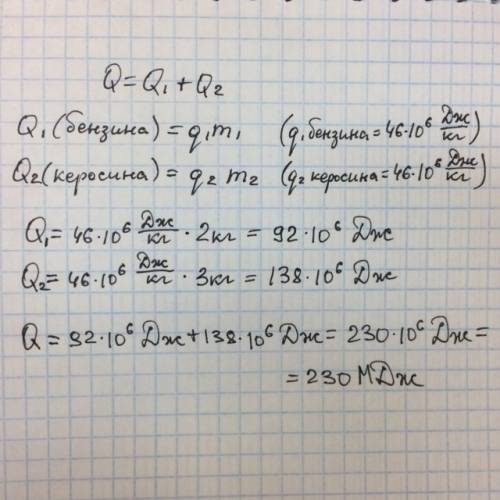 Q = Q₁ + Q₂
Q₁(бензина) = q₁m₁ (q₁ бензина = 46·10⁶ Дж/кг)
Q₂(керосина) = q₂ m₂ (q₂ керосина = 46·10⁶ Дж/кг)
Q₁ = 46·10⁶ Дж/кг · 2кг = 92·10⁶ Дж
Q₂ = 46·10⁶ Дж/кг · 3кг = 138·10⁶ Дж
Q = 92·10⁶ Дж + 138·10⁶ Дж = 230·10⁶ Дж =
= 230 МДж